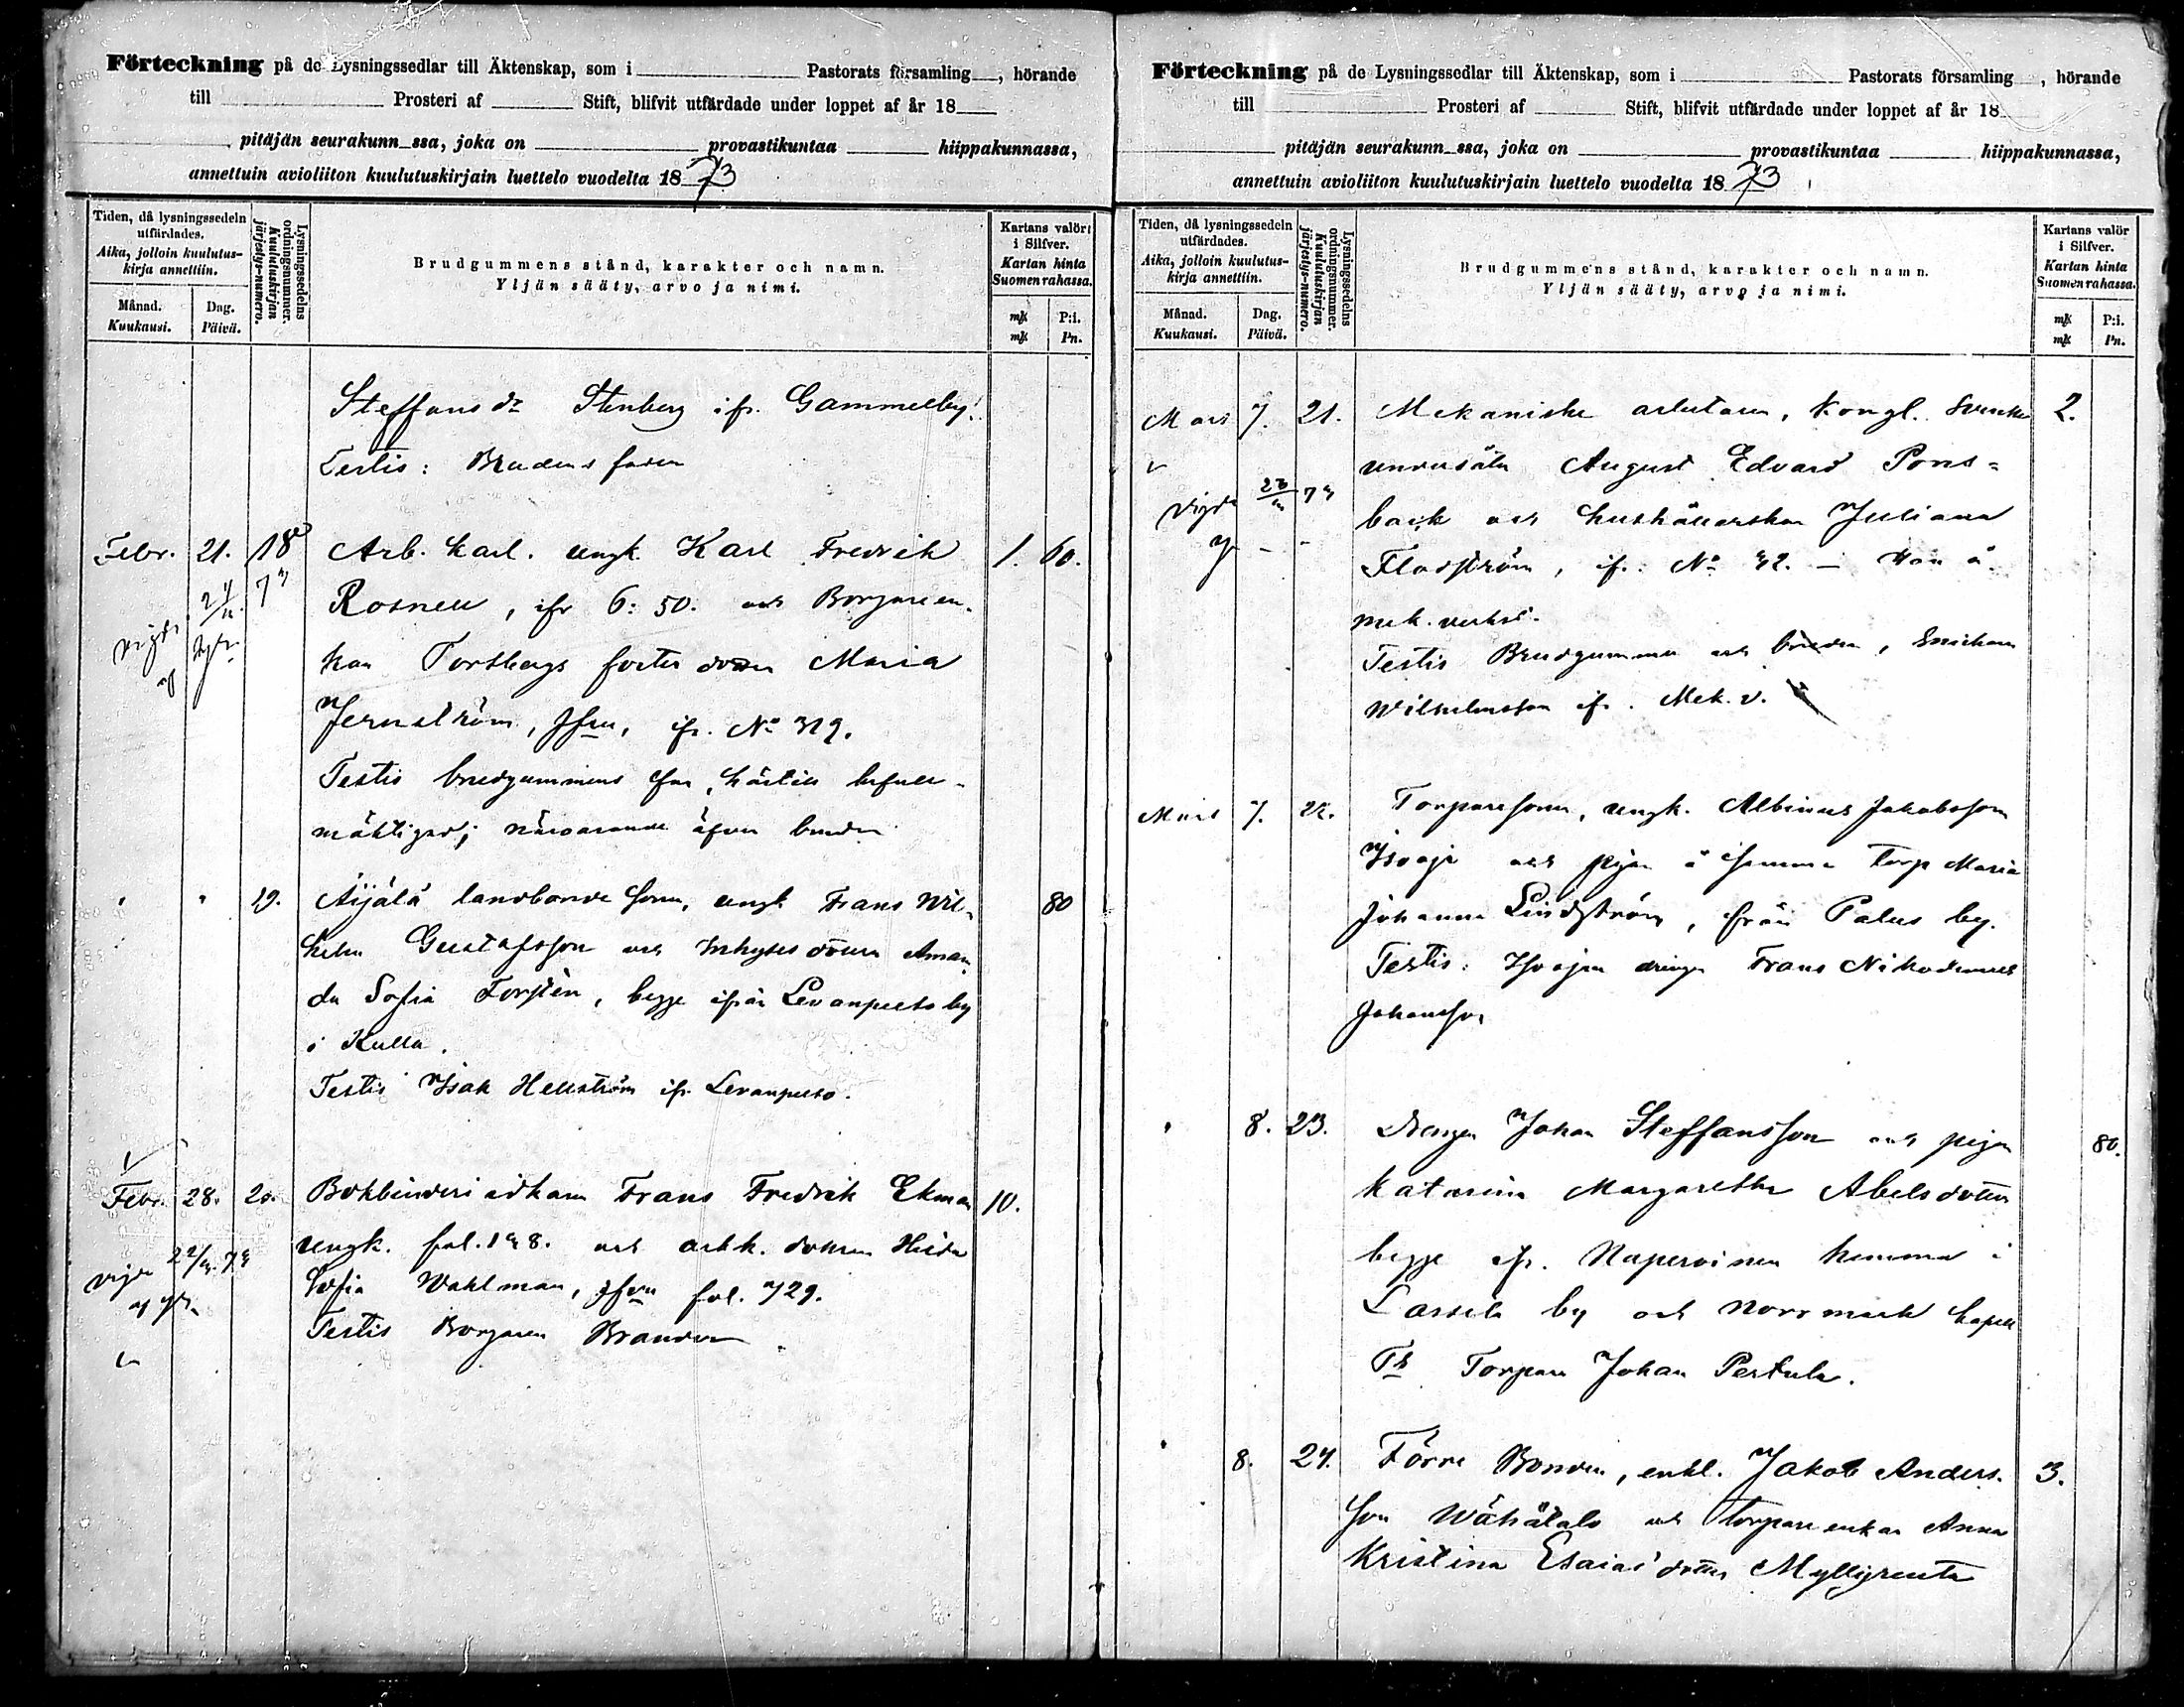 Förteckning på de Lysningssedlar till Äktenskap, som i Pastorats församling , hörande
till Prosteri af Stift, blifvit utfärdade under loppet af år 18
pitäjän seurakunn ssa, joka on provastikuntaa hiippakunnassa,
annettuin avioliiton kuulutuskirjain luettelo vuodelta 1873
Tiden, då lysningssedeln utfärdades.
Aika, jolloin kuulutus-kirja annettiin.
Månad. Kuukausi.
Dag. Päivä.
Lysningssedelns ordningsnummer.
Kuulutuskirjan järjestys-numero.
Brudgummens stånd, karakter och namn.
Yljän sääty, arvo ja nimi.
Kartans valör i Silfver.
Kartan hinta Suomen rahassa.
mk P:i.
mk Pn.
Steffans dr Stenberg ifr. Gammelby.
Testis: Brudens fader
Febr. 21. 18 Arb. karl. ungk. Karl Fredrik 1. 60.
Rosnell, ifr 6: 50. och Borgare en-
kan Forsbergs foster dotter Maria
Jernström, ifr. No 319.
Testis brudgummens far, härtill befull-
mäktigad; närvarande äfven bruden
" " 19. Äijälä landbonde son, ungk Frans Wil- 80
helm Gustafsson och Inhyses dottern Aman
da Sofia Forstén, begge ifrån Levanpelto by
i Kulla.
Testis Isak Hellström ifr. Levanpelto.
Febr. 28. 20. Bokbinderi idkaren Frans Fredrik Ekman 10.
ungk. fol. och dottren Hilda
Sofia Wahlman, fol. 729.
Testis Borgaren Brander.
Förteckning på de Lysningssedlar till Äktenskap, som i Pastorats församling , hörande
till Prosteri af Stift, blifvit utfärdade under loppet af år 18
pitäjän seurakunn ssa, joka on provastikuntaa hiippakunnassa,
annettuin avioliiton kuulutuskirjain luettelo vuodelta 1873
Tiden, då lysningssedeln utfärdades.
Aika, jolloin kuulutus-kirja annettiin.
Månad. Kuukausi.
Dag. Päivä.
Lysningssedelns ordningsnummer.
Kuulutuskirjan järjestys-numero.
Brudgummens stånd, karakter och namn.
Yljän sääty, arvo ja nimi.
Kartans valör i Silfver.
Kartan hinta Suomen rahassa.
mk P:i.
mk Pn.
Mars 7. 21. Mekaniske arbetaren, Kongl. Svenske 2.
undersåten August Edvard Pons=
back och hushållerskan Juliana
Flodström, ifr. No 42. - Han å
mek. verkst.
Testis Brudgummen och bruden, Snickaren
Wilhelmsson ifr. Mek. v.
Mars 7. 22. Torparesonen, ungk. Albinus Jakobsson
Isooja och pigan å samma torp Maria
Johanna Lindström, från Palus by.
Testis: Isoojan drängen Frans Nikodemus
Johansson
" 8. 23. Drengen Johan Steffansson och pigan 80.
Katarina Margaretha Abelsdotter
begge ifr. Napervinen hemman i
Lassila by och Norrmark kapell
Ts Torparen Johan Pertula.
" 8. 24. Förre Bonden, enkl. Jakob Anders- 3.
son Wähätalo och Torpare enkan Anna
Kristina Esaias' dotter Myllyranta